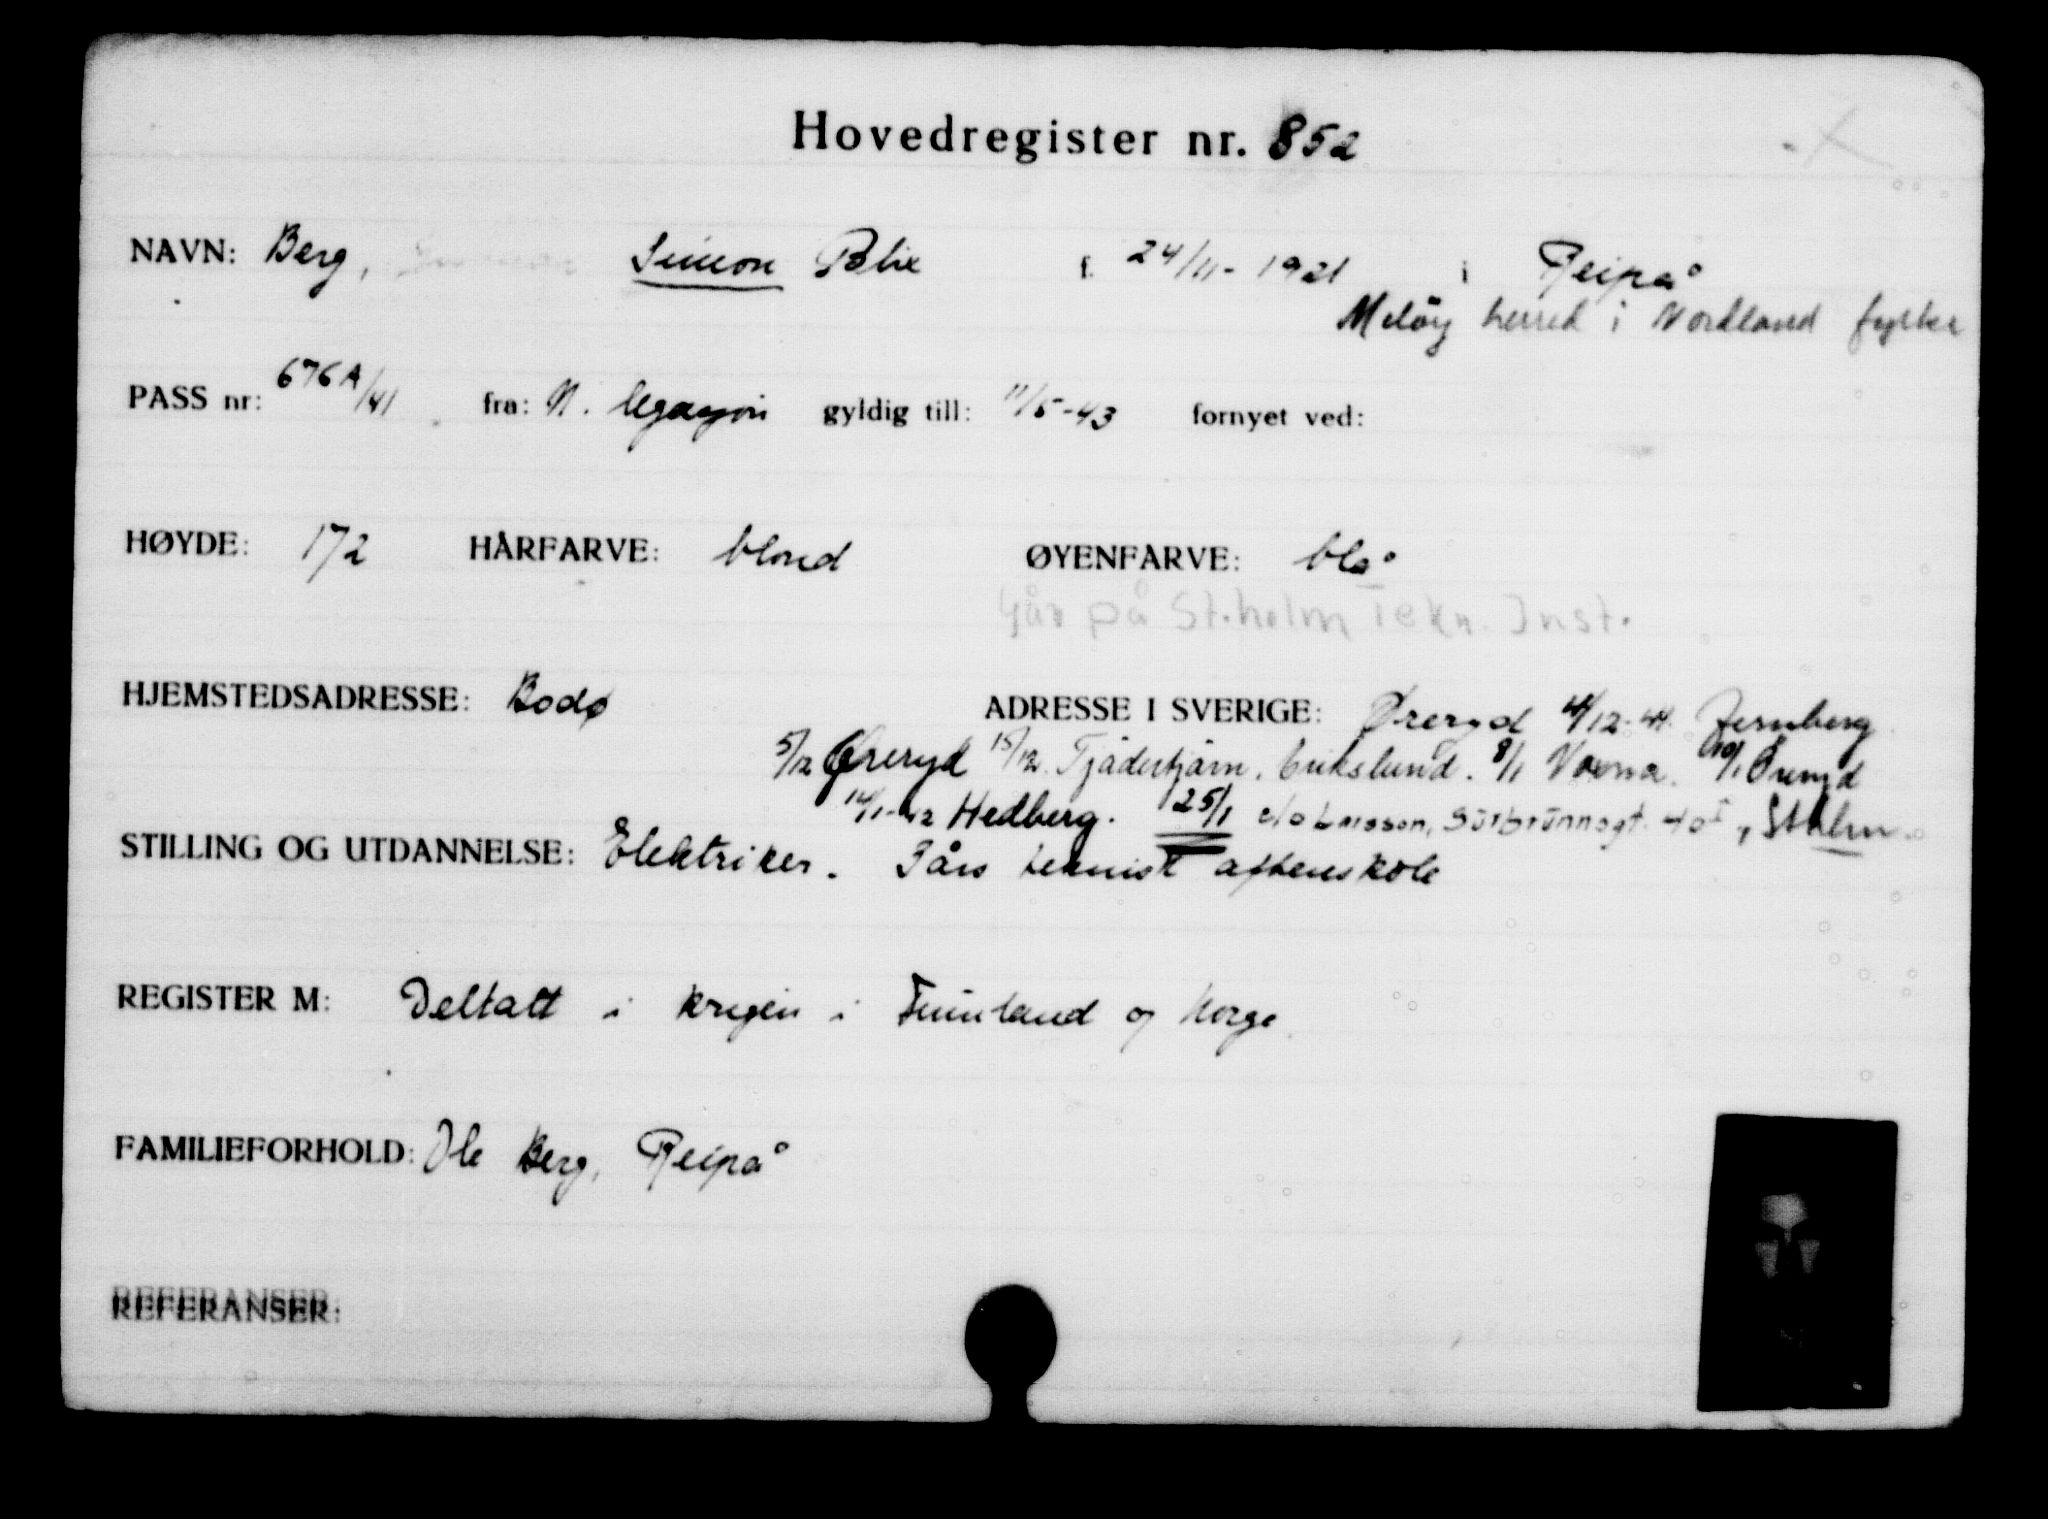 Hovedregister nr. 852
NAVN: Berg, Simon Blix f. 24/11-1921 i Reipå
Meløy herred i Nordland fylke
PASS nr: 676A/41 fra: N. legasjon gyldig till: 11/5-43 fornyet ved:
HØYDE: 172 HÅRFARVE: blond ØYENFARVE: blå
Går på St.holm Tekn. Inst.
HJEMSTEDSADRESSE: Bodø ADRESSE I SVERIGE: Øreryd 4/12-41 Jernberg
5/12 Øreryd 15/12 Tjäderstjärn, Erikslund. 8/1 Voxna. 10/1 Øreryd
14/1-42 Hedberg. 25/1 c/o Larsson, Surbrunnsgt. 40 I, Sthlm.
STILLING OG UTDANNELSE: Elektriker. 3 års teknisk aftenskole
REGISTER M: Deltatt i krigen i Finnland og Norge.
FAMILIEFORHOLD: Ole Berg, Reipå
REFERANSER: